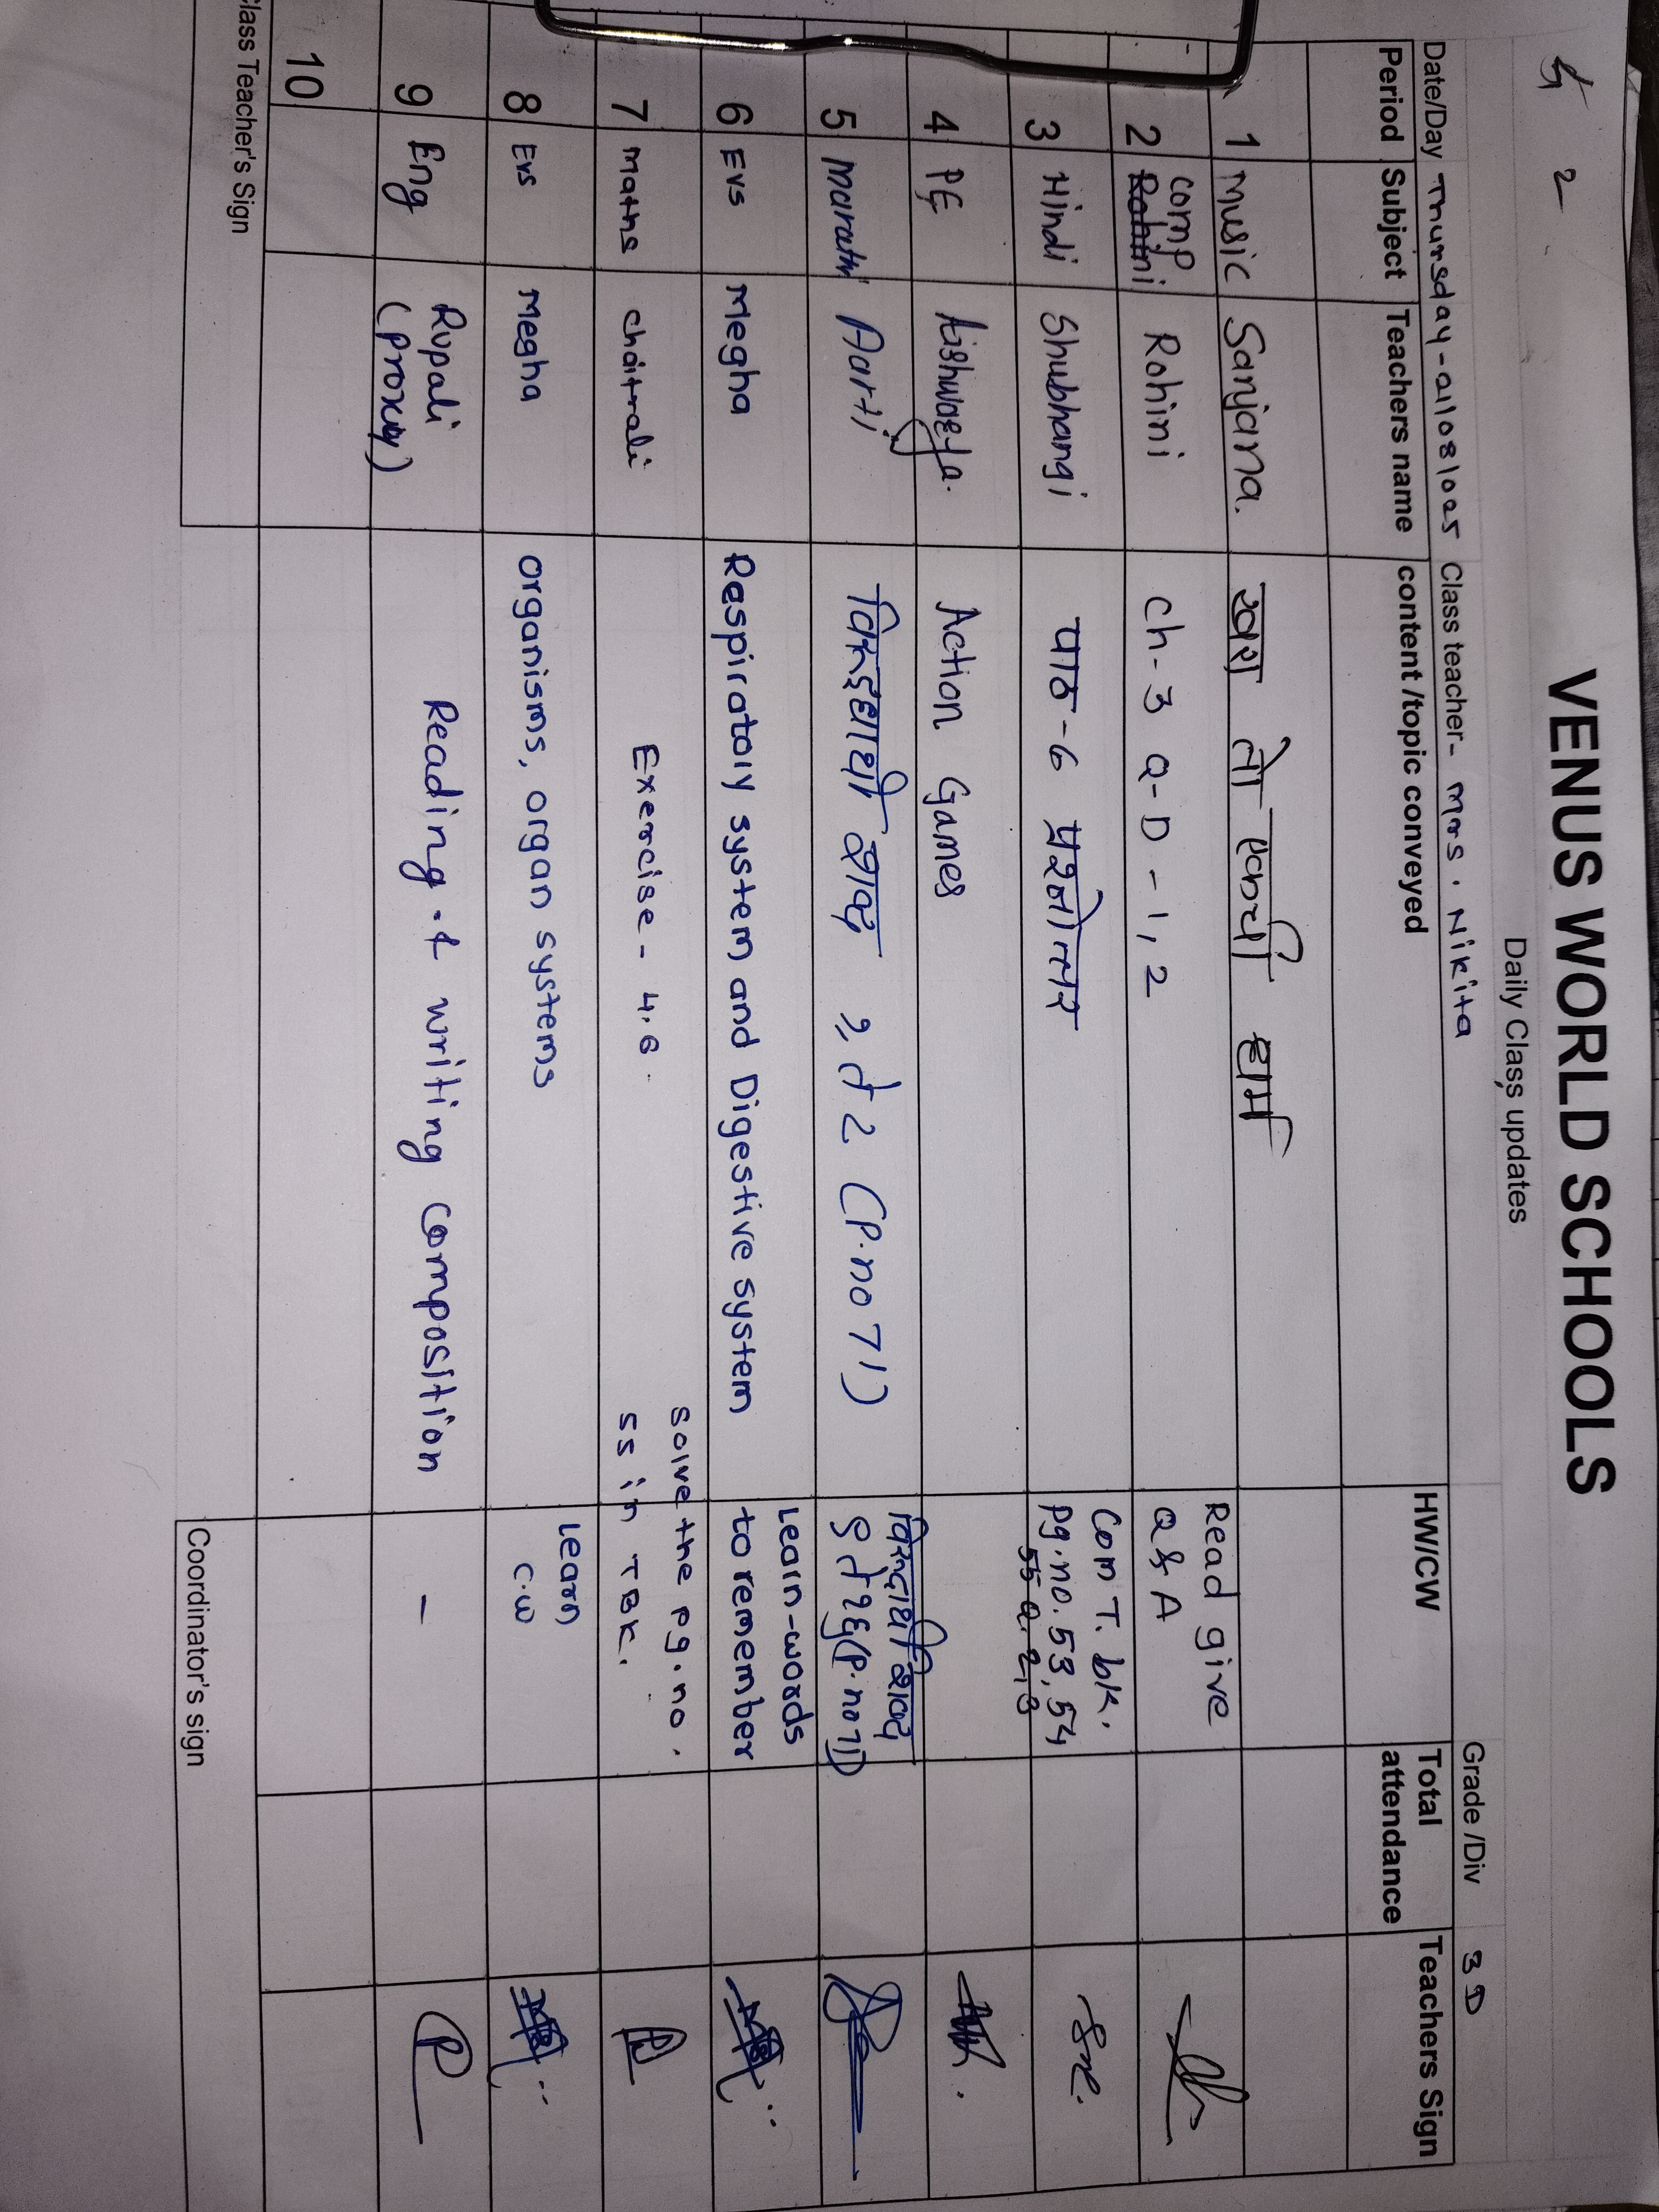 VENUS WORLD SCHOOLS
Daily Class updates
Date/Day Thursday - 21/08/2025 Class teacher- Mrs. Nikita Grade /Div 3 D
Period Subject Teachers name content /topic conveyed HW/CW Total attendance Teachers Sign
1 Music Sanjana.
2 Comp Rohini Ch-3 Q-D-1,2 Read give Q & A
3 Hindi Shubhangi पाठ-6 प्रश्नोत्तर Com T. bk. Pg.no.53,54
4 PE Aishwarya. Action Games
5 Marathi Aarti विरुद्धार्थी शब्द १ ते 2 (P.no 71) विरुद्धार्थी शब्द
6 EVS Megha Respiratory system and Digestive system Learn-words to remember
7 Maths Chaitrali Exercise - 4.6. Solve the pg.no. 55 in TBK.
8 EVS Megha Organisms, organ systems Learn C.W
9 Eng Rupali (Proxy) Reading & writing composition -
10
Class Teacher's Sign Coordinator's sign